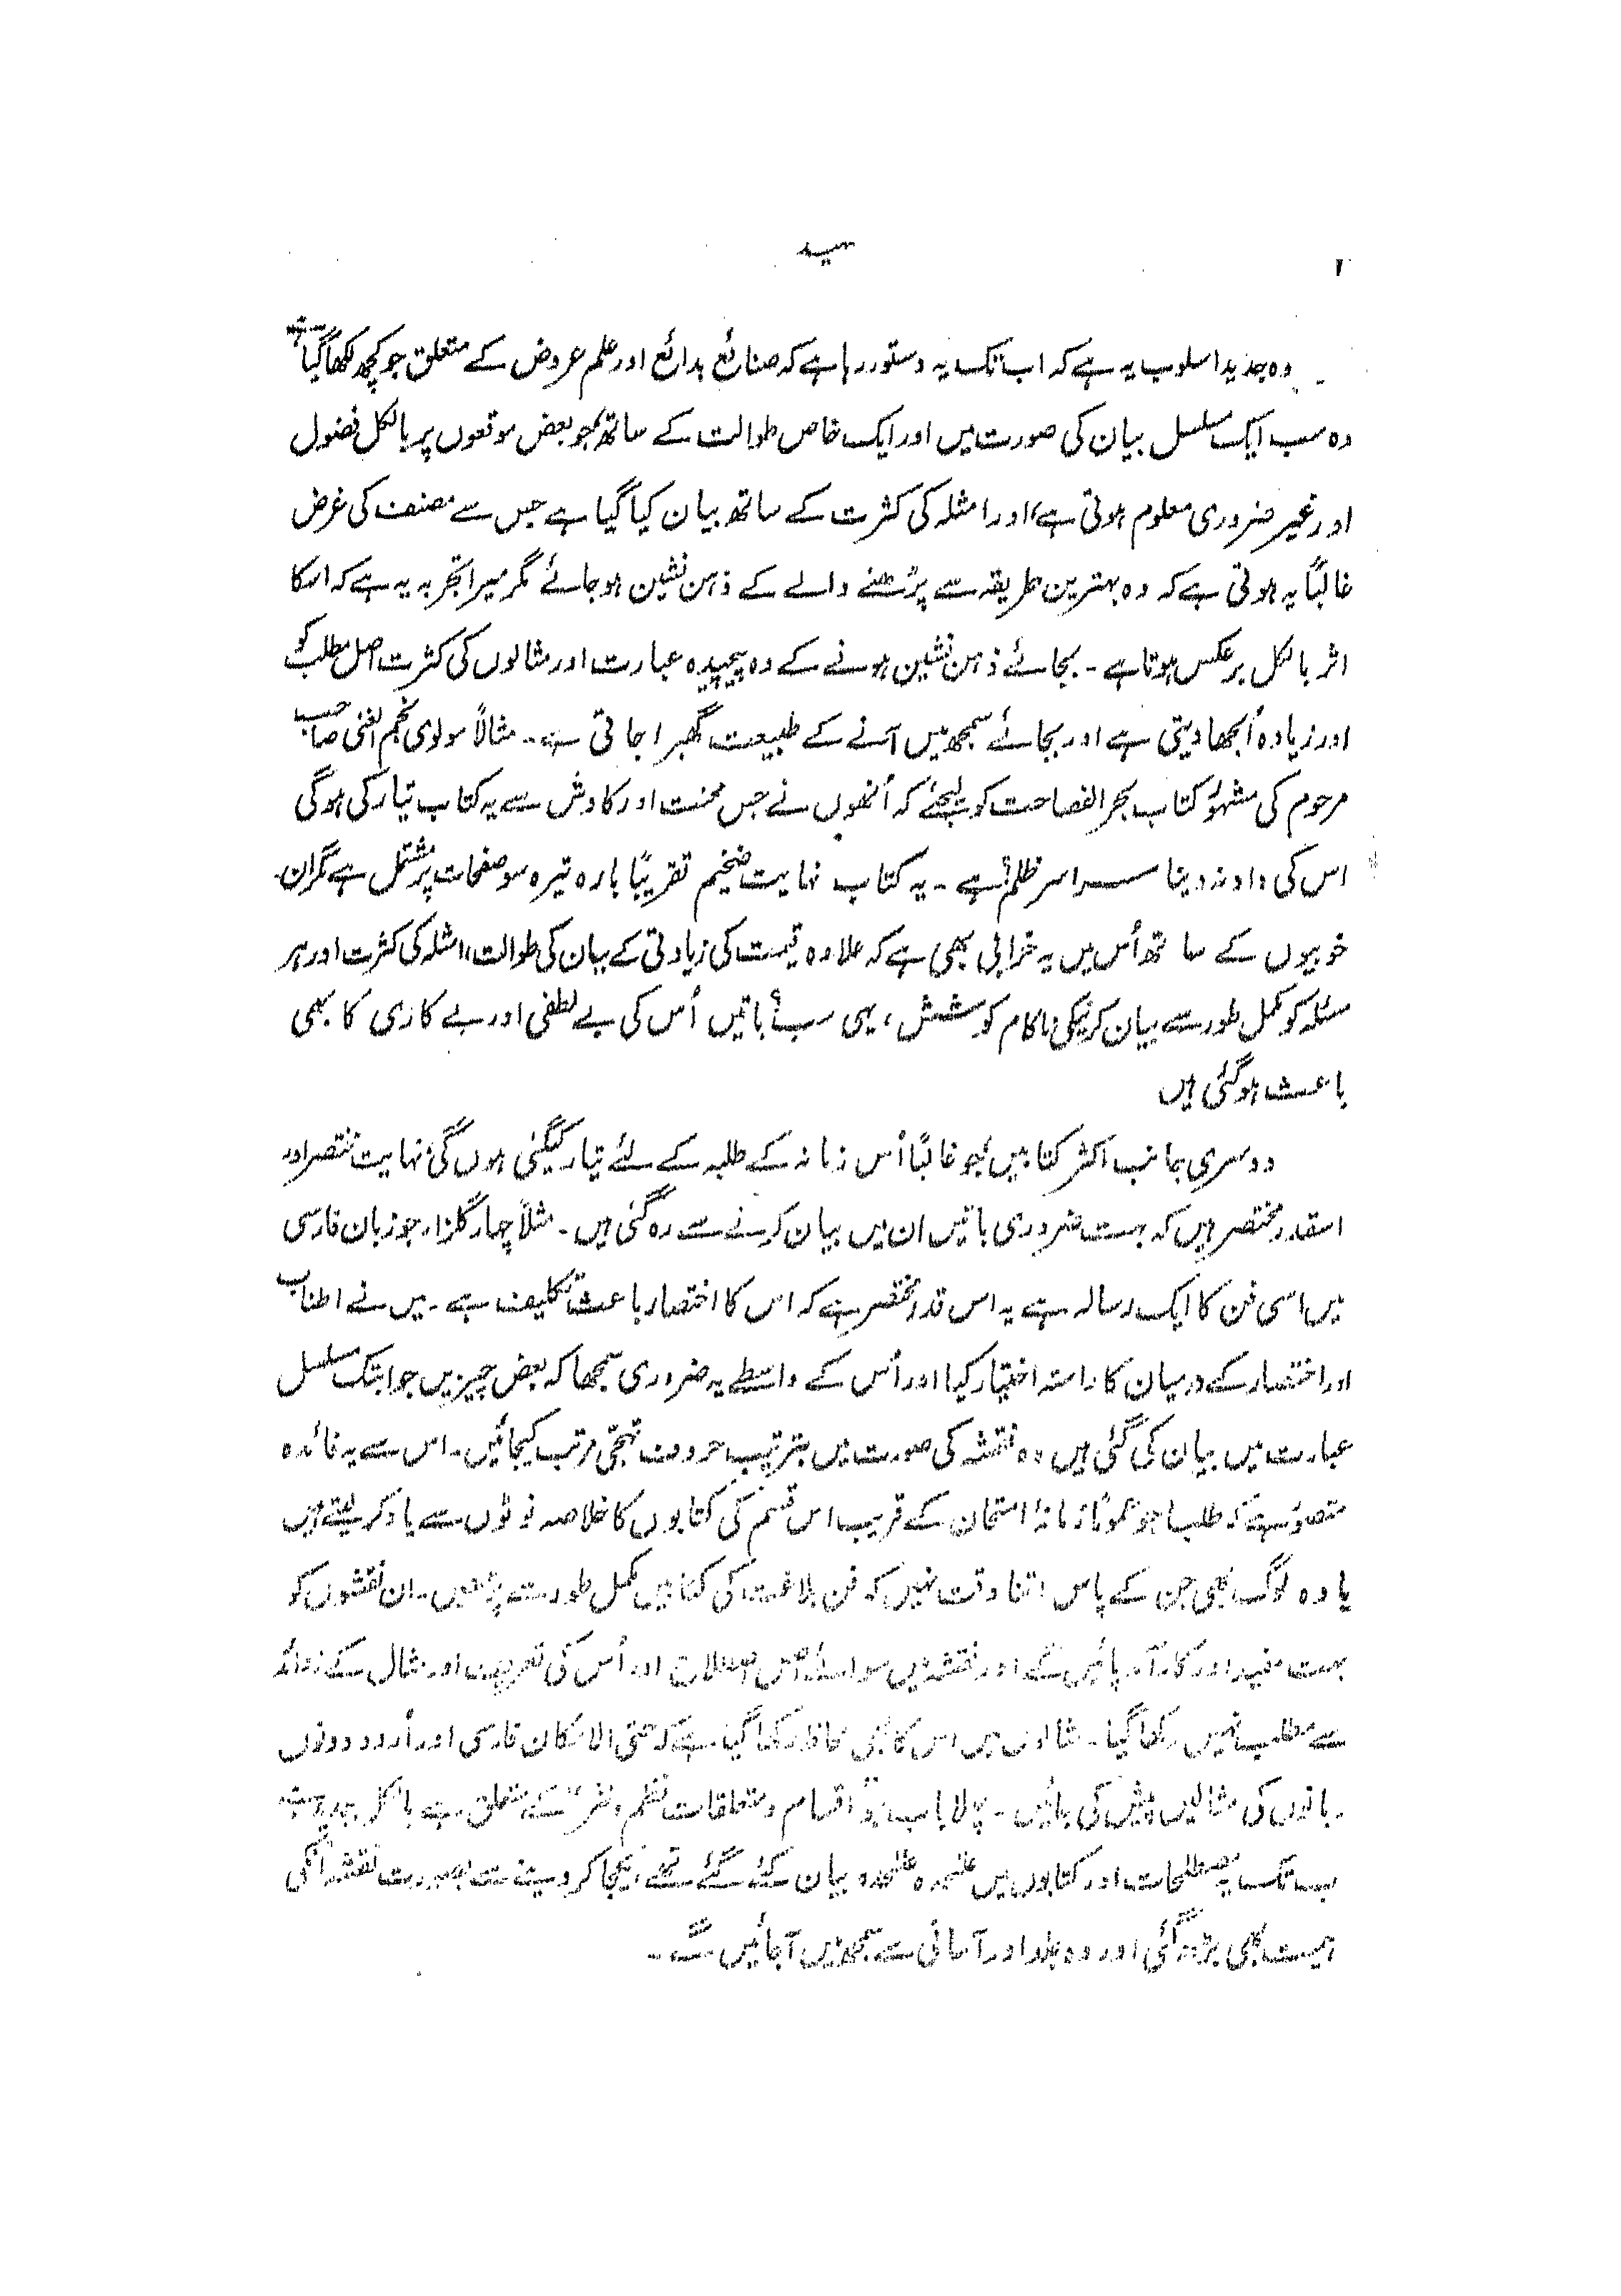 ۲
وہ جدید اسلوب یہ ہے کہ اب تک یہ دستور رہا ہے کہ صنائع بدائع اور علم عروض کے متعلق جو کچھ لکھا گیا ہے
وہ سب ایک مسلسل بیان کی صورت میں اور ایک خاص طوالت کے ساتھ جو بعض موقعوں پر بالکل فضول
اور غیر ضروری معلوم ہوتی ہے، اور امثلہ کی کثرت کے ساتھ بیان کیا گیا ہے جس سے مصنف کی غرض
غالباً یہ ہوتی ہے کہ وہ بہترین طریقہ سے پڑھنے والے کے ذہن نشین ہوجائے مگر میرا تجربہ یہ ہے کہ اسکا
اثر بالکل برعکس ہوتا ہے ۔ بجائے ذہن نشین ہونے کے وہ پیچیدہ عبارت اور مثالوں کی کثرت اصل مطلب کو
اور زیادہ اُلجھا دیتی ہے اور بجائے سمجھ میں آنے کے طبیعت گھبرا جاتی ہے ۔ مثالاً مولوی نجم الغنی صاحب
مرحوم کی مشہور کتاب بحر الفصاحت کو لیجئے کہ اُنھوں نے جس محنت اور کاوش سے یہ کتاب تیار کی ہوگی
اس کی داد نہ دینا سراسر ظلم ہے ۔ یہ کتاب نہایت ضخیم تقریباً بارہ تیرہ سو صفحات پر مشتمل ہے مگر ان
خوبیوں کے ساتھ اُس میں یہ خرابی بھی ہے کہ علاوہ قیمت کی زیادتی کے بیان کی طوالت، امثلہ کی کثرت اور ہر
مسئلہ کو مکمل طور سے بیان کرنیکی ناکام کوشش، یہی سب باتیں اُس کی بے لطفی اور بے کاری کا بھی
باعث ہوگئی ہیں
دوسری جانب اکثر کتابیں جو غالباً اُس زمانہ کے طلبہ کے لئے تیار کیگئی ہوں گی نہایت مختصر اور
اسقدر مختصر ہیں کہ بہت ضروری باتیں ان میں بیان کرنے سے رہ گئی ہیں ۔ مثلاً چہار گلزار جو زبان فارسی
میں اسی فن کا ایک رسالہ ہے یہ اس قدر مختصر ہے کہ اس کا اختصار باعث تکلیف ہے ۔ میں نے اطناب
اور اختصار کے درمیان کا راستہ اختیار کیا اور اُس کے واسطے یہ ضروری سمجھا کہ بعض چیزیں جو ابتک مسلسل
عبارت میں بیان کی گئی ہیں وہ نقشہ کی صورت میں بترتیب حروف تہجّی مرتب کیجائیں ۔ اس سے یہ فائدہ
متصور ہے کہ طلبا جو عموماً زمانۂ امتحان کے قریب اس قسم کی کتابوں کا خلاصہ نوٹوں سے یاد کر لیتے ہیں
یا وہ لوگ بھی جن کے پاس اتنا وقت نہیں کہ فن بلاغت کی کتابیں مکمل طور سے پڑھیں ۔ ان نقشوں کو
بہت مفید اور کارآمد پائیں گے اور نقشہ میں سوائے اُس اصطلاح اور اُس کی تعریف اور مثال کے زوائد
سے مطلب نہیں رکھا گیا ۔ مثالوں میں اس کا بھی لحاظ رکھا گیا ہے کہ حتی الامکان فارسی اور اُردو دونوں
زبانوں کی مثالیں پیش کی جائیں ۔ پہلا باب جو اقسام و متعلقات نظم و نثر کے متعلق ہے بالکل جدید ہے
اب تک یہ مصطلحات اور کتابوں میں علٰحدہ علٰحدہ بیان کئے گئے تھے، یکجا کر دینے سے بصورت نقشہ اُنکی
اہمیت بھی بڑھ گئی اور وہ جلد اور آسانی سے سمجھ میں آجائیں گے ۔